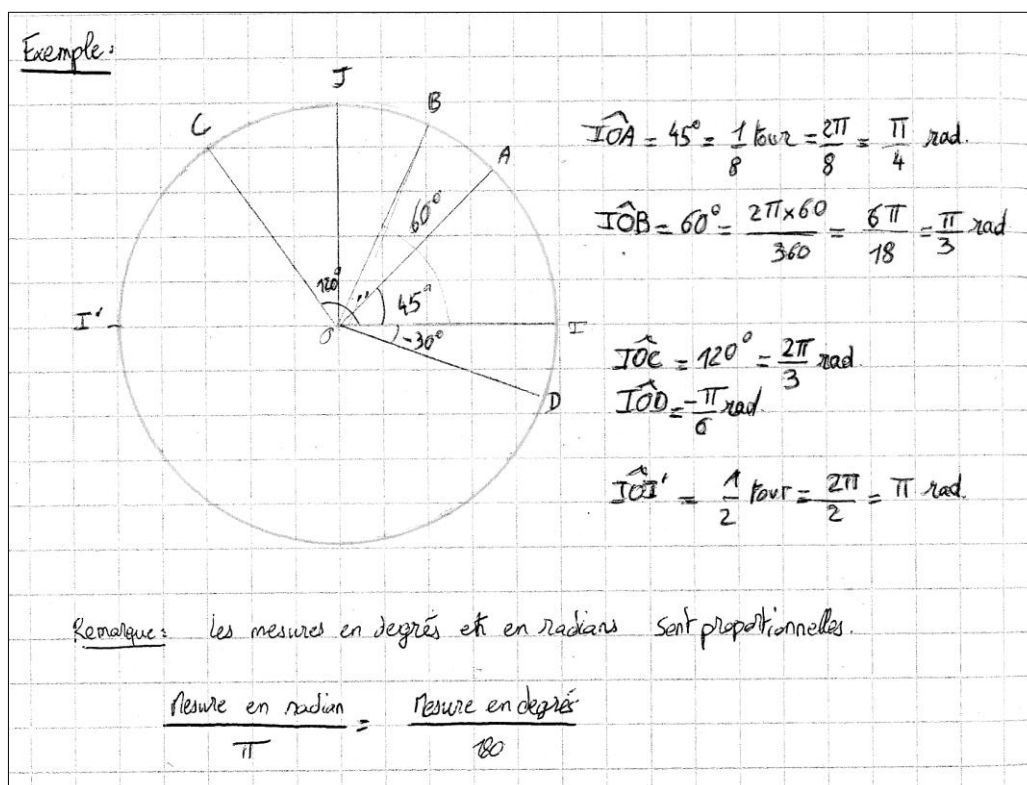 Exemple:
J
B
C
A
60°
120°
45°
I'
O
I
-30°
D
IOA = 45° = 1/8 tour = 2π/8 = π/4 rad.
IOB = 60° = 2π×60/360 = 6π/18 = π/3 rad
IOC = 120° = 2π/3 rad.
IOD = -π/6 rad.
IOI' = 1/2 tour = 2π/2 = π rad.
Remarque: les mesures en degrés et en radians sont proportionnelles.
Mesure en radian / π = Mesure en degrés / 180